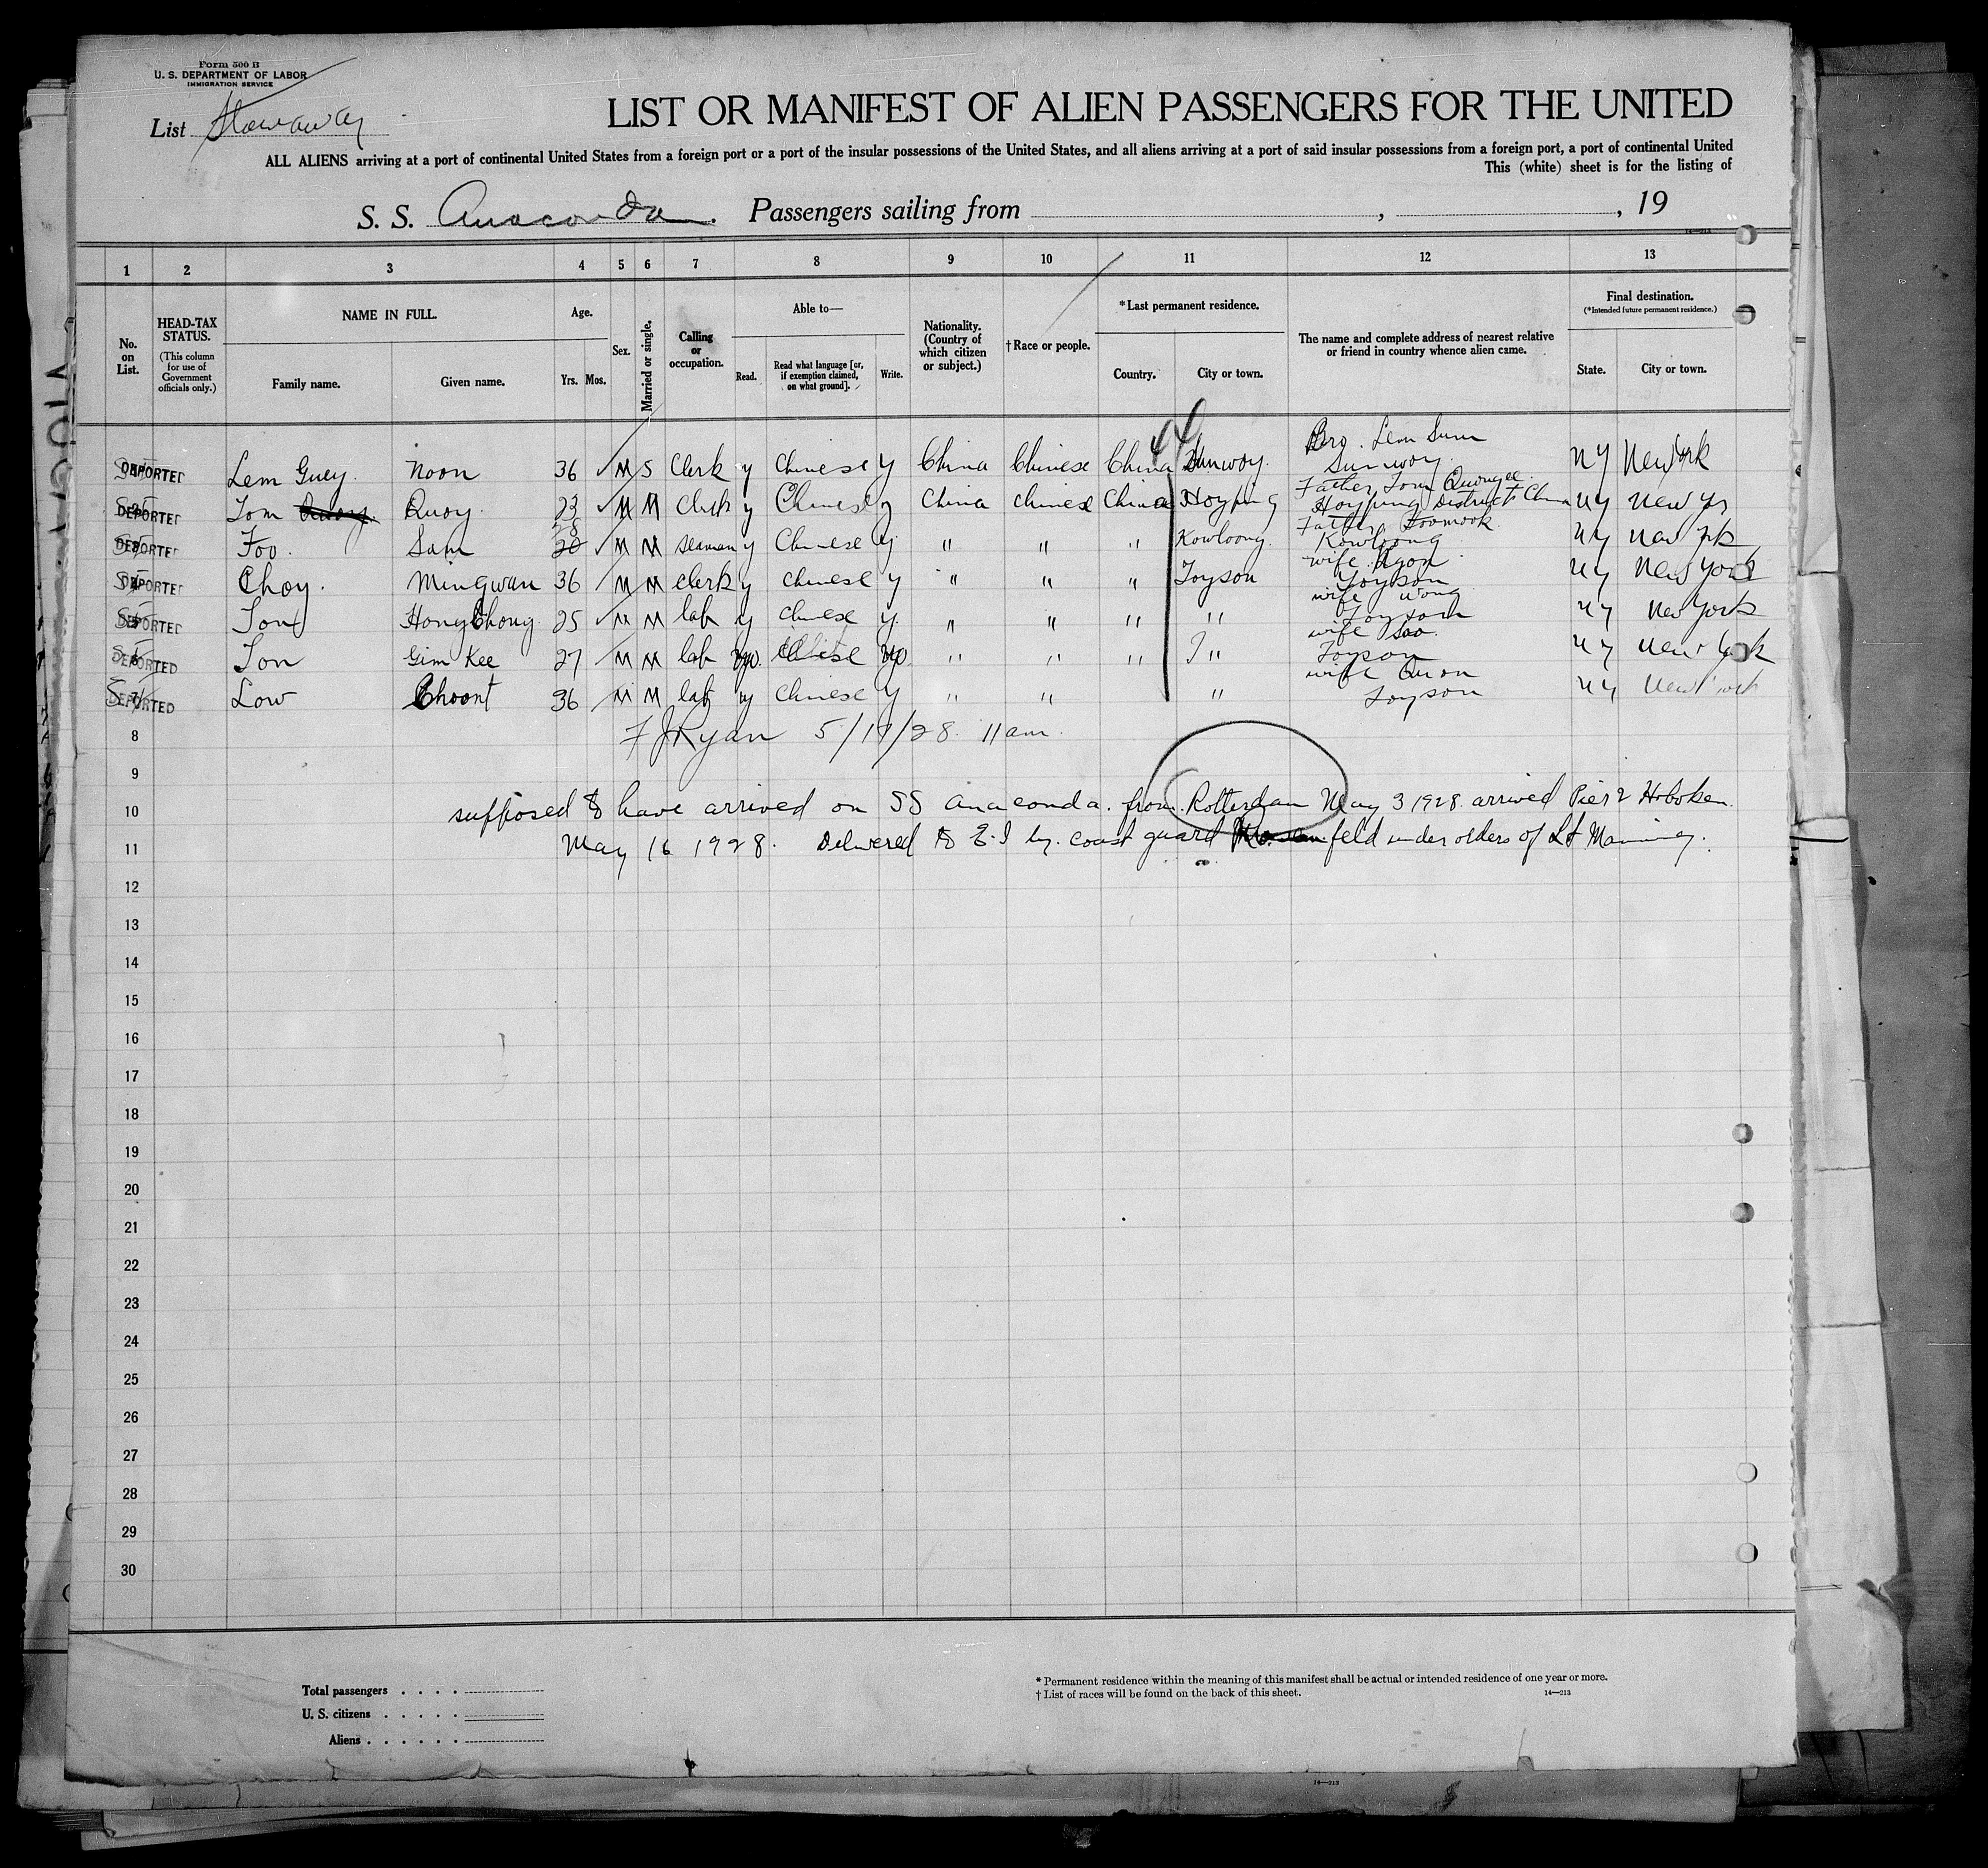 Form 500 B
U. S. DEPARTMENT OF LABOR
IMMIGRATION SERVICE
List Stowaway
LIST OR MANIFEST OF ALIEN PASSENGERS FOR THE UNITED
ALL ALIENS arriving at a port of continental United States from a foreign port or a port of the insular possessions of the United States, and all aliens arriving at a port of said insular possessions from a foreign port, a port of continental United
This (white) sheet is for the listing of
S. S. Anaconda. Passengers sailing from , , 19
14—213
1 2 3 4 5 6 7 8 9 10 11 12 13
No. on List.
HEAD-TAX STATUS.
(This column for use of Government officials only.)
NAME IN FULL.
Family name. Given name.
Age.
Yrs. Mos.
Sex.
Married or single.
Calling or occupation.
Able to—
Read. Read what language [or, if exemption claimed, on what ground]. Write.
Nationality. (Country of which citizen or subject.)
†Race or people.
*Last permanent residence.
Country. City or town.
The name and complete address of nearest relative or friend in country whence alien came.
Final destination.
(*Intended future permanent residence.)
State. City or town.
DEPORTED Lem Guey Noon 36 M S Clerk y Chinese y China Chinese China Sunwoy. Bro. Lem Sum Sunwoy. NY New York
DEPORTED Tom Quoy 23 M M Clerk y Chinese y China Chinese China Hoyping Father Tom Hoyping District China NY New Yr
DEPORTED Foo. Sam 28 20 M M seaman y Chinese y " " " Kowloong. Father Foomook. Kowloong NY New York
DEPORTED Choy. Mingwan 36 M M clerk y Chinese y " " " Toyson wife Toyson NY New York
DEPORTED Tom Hong Chong 25 M M lab y Chinese y. " " " " wife Wong Toyson NY New York
DEPORTED Tom Gim Kee 27 M M lab no. Chinese no " " " " wife Soo. Toyson NY New York
DEPORTED Low Choont 36 M M lab y Chinese y " " " wife Toyson NY New York
8 F J Ryan 5/17/28 11 am.
9
10 supposed to have arrived on SS Anaconda. from Rotterdam May 3 1928. arrived Pier 2 Hoboken.
11 May 16 1928. Delivered to E.I by. coast guard feld under orders of Lt Manning.
12
13
14
15
16
17
18
19
20
21
22
23
24
25
26
27
28
29
30
Total passengers . . . .
U. S. citizens . . . . .
Aliens . . . . . .
* Permanent residence within the meaning of this manifest shall be actual or intended residence of one year or more.
† List of races will be found on the back of this sheet.
14—213
14—213